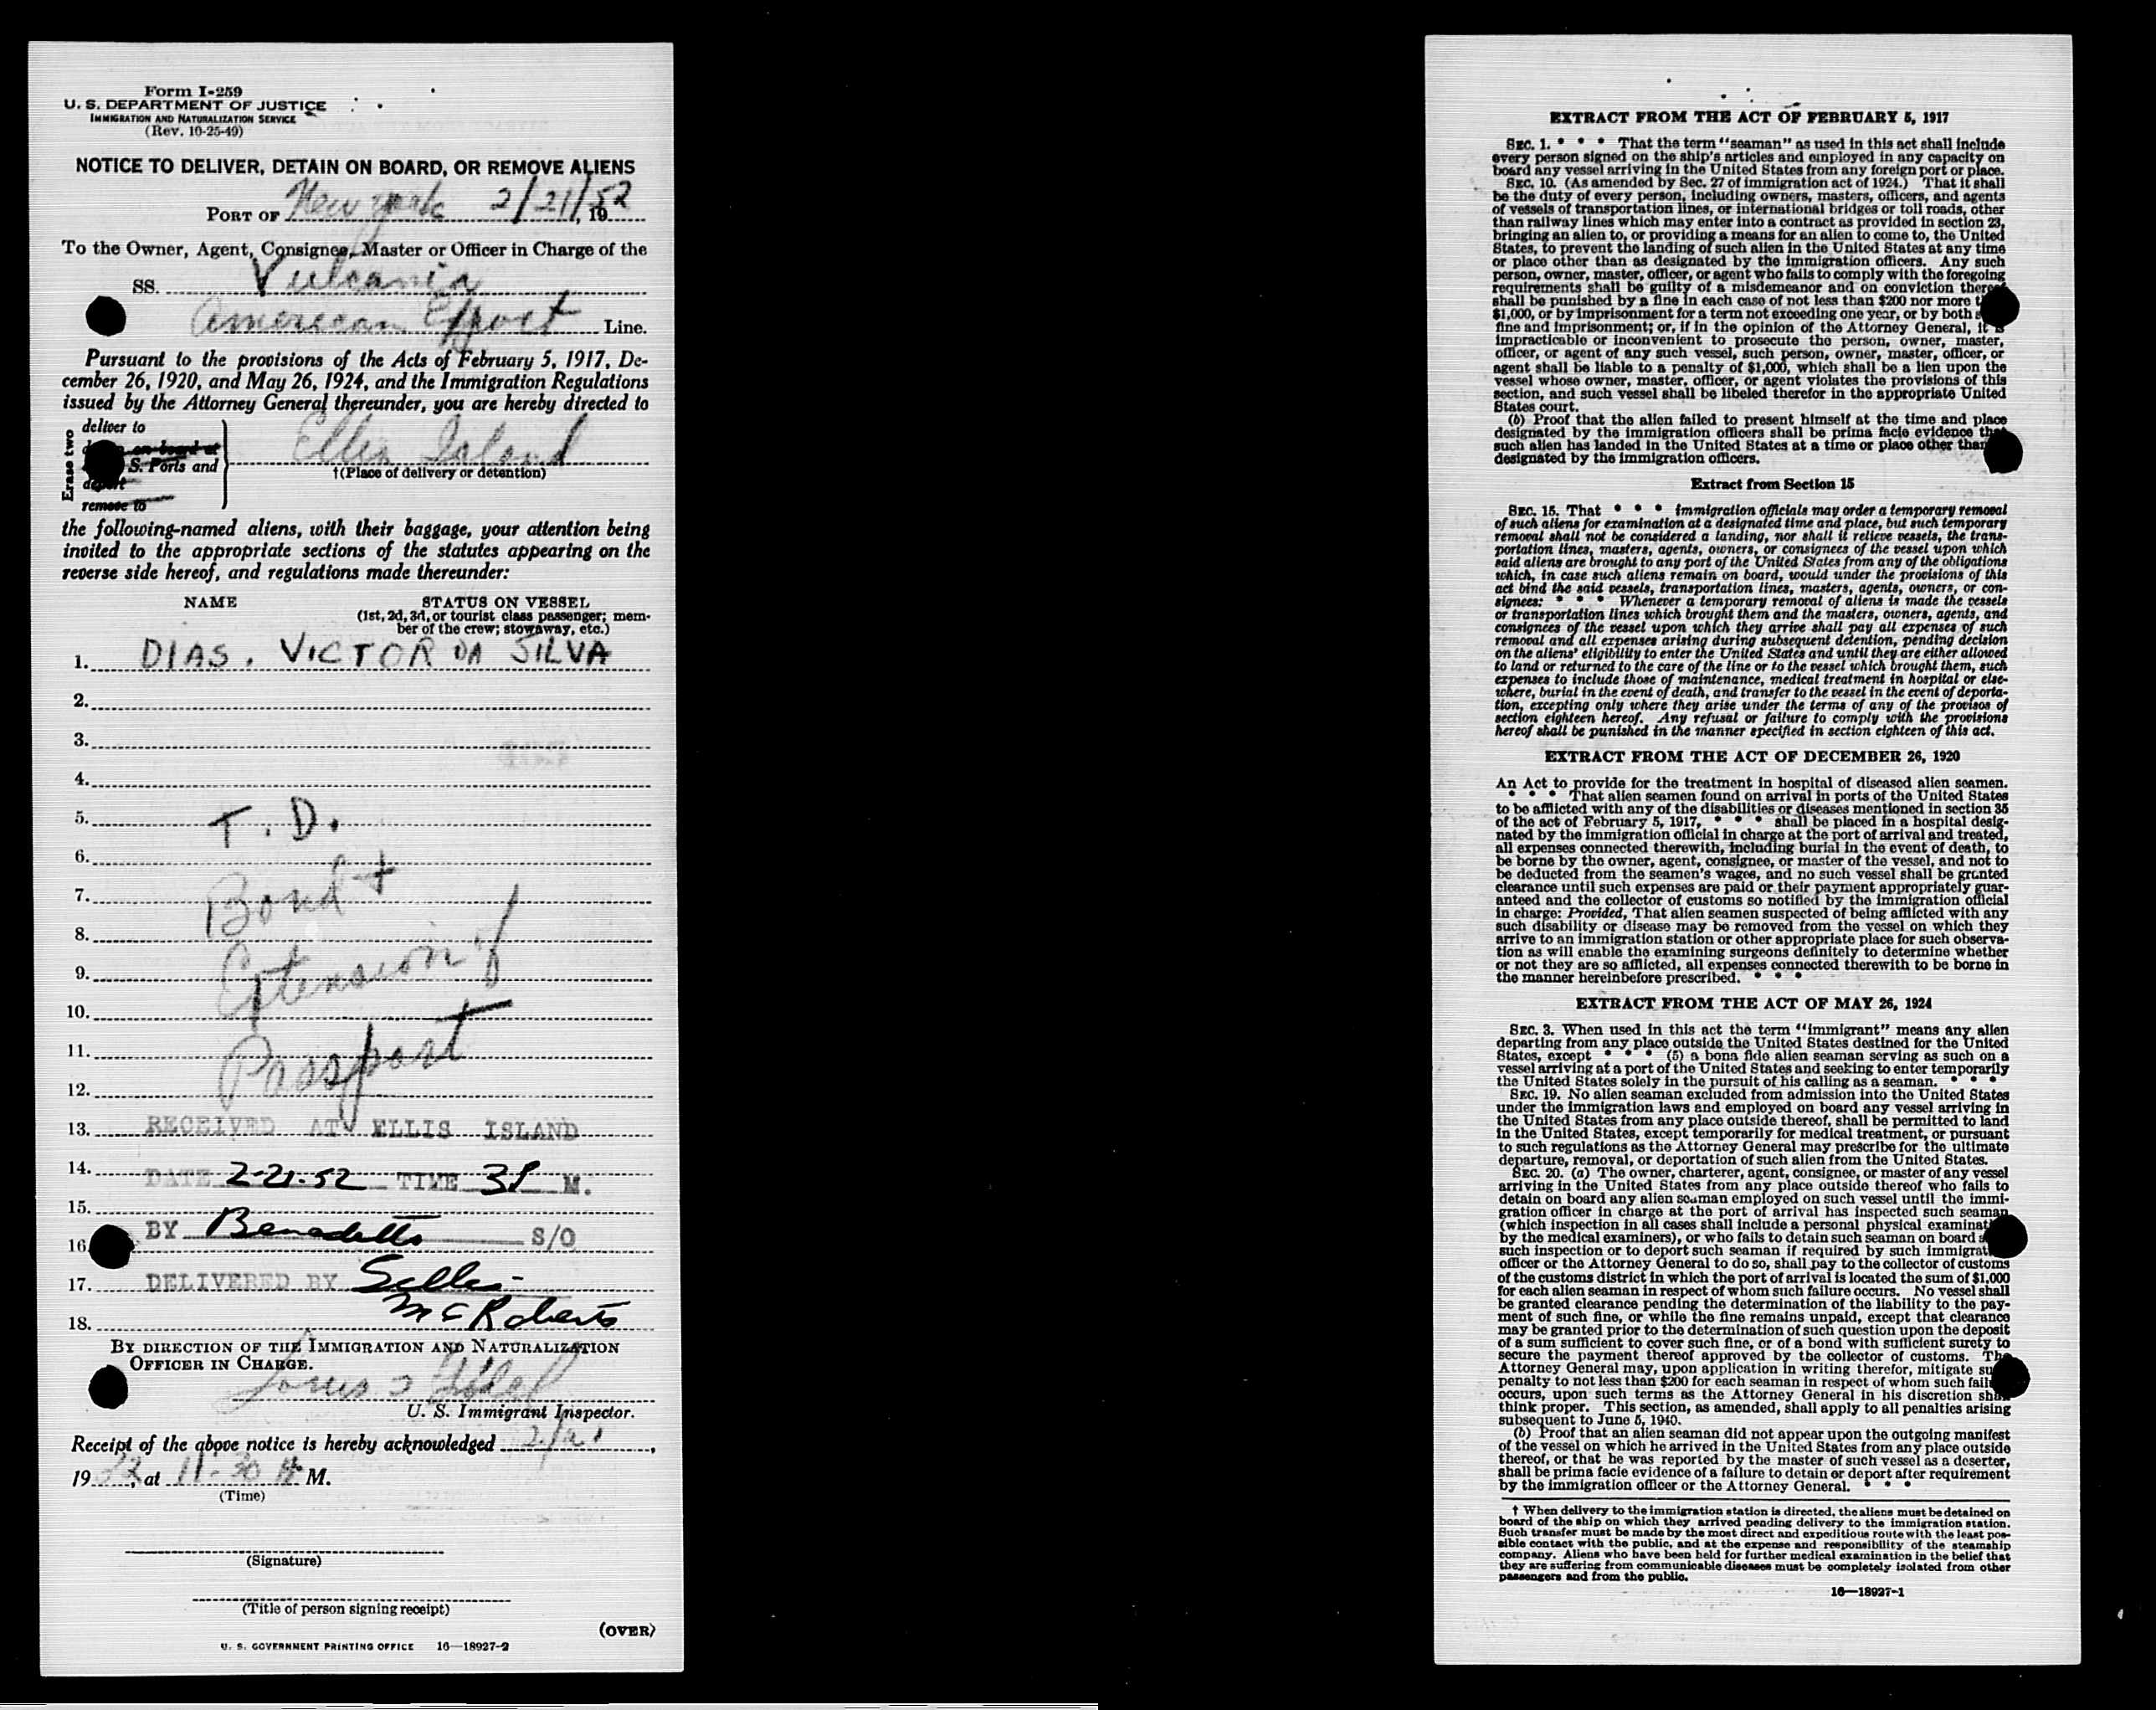 Form I-259
U. S. DEPARTMENT OF JUSTICE
IMMIGRATION AND NATURALIZATION SERVICE
(Rev. 10-25-49)
NOTICE TO DELIVER, DETAIN ON BOARD, OR REMOVE ALIENS
PORT OF New York 2/21/, 1952
To the Owner, Agent, Consignee, Master or Officer in Charge of the
SS. Vulcania
American Export Line.
Pursuant to the provisions of the Acts of February 5, 1917, De-
cember 26, 1920, and May 26, 1924, and the Immigration Regulations
issued by the Attorney General thereunder, you are hereby directed to
Erase two
deliver to
on board at
S. Ports and
remove to
Ellis Island
†(Place of delivery or detention)
the following-named aliens, with their baggage, your attention being
invited to the appropriate sections of the statutes appearing on the
reverse side hereof, and regulations made thereunder:
NAME STATUS ON VESSEL
(1st, 2d, 3d, or tourist class passenger; mem-
ber of the crew; stowaway, etc.)
1. DIAS, VICTOR DA SILVA
2.
3.
4.
5. T. D.
6.
7. Bond +
8.
9. Extension of
10.
11. Passport
12.
13. RECEIVED AT ELLIS ISLAND
14. DATE 2-21-52 TIME 3P M.
15.
16. BY Benedetto S/O
17. DELIVERED BY
18. McRoberts
BY DIRECTION OF THE IMMIGRATION AND NATURALIZATION
OFFICER IN CHARGE.
Louis
U. S. Immigrant Inspector.
Receipt of the above notice is hereby acknowledged 2/21,
1952, at 11-30 A M.
(Time)
(Signature)
(Title of person signing receipt)
(OVER)
U. S. GOVERNMENT PRINTING OFFICE 16—18927-2
EXTRACT FROM THE ACT OF FEBRUARY 5, 1917
SEC. 1. * * * That the term "seaman" as used in this act shall include
every person signed on the ship's articles and employed in any capacity on
board any vessel arriving in the United States from any foreign port or place.
SEC. 10. (As amended by Sec. 27 of immigration act of 1924.) That it shall
be the duty of every person, including owners, masters, officers, and agents
of vessels of transportation lines, or international bridges or toll roads, other
than railway lines which may enter into a contract as provided in section 23,
bringing an alien to, or providing a means for an alien to come to, the United
States, to prevent the landing of such alien in the United States at any time
or place other than as designated by the immigration officers. Any such
person, owner, master, officer, or agent who fails to comply with the foregoing
requirements shall be guilty of a misdemeanor and on conviction thereof
shall be punished by a fine in each case of not less than $200 nor more
$1,000, or by imprisonment for a term not exceeding one year, or by both
fine and imprisonment; or, if in the opinion of the Attorney General, it is
impracticable or inconvenient to prosecute the person, owner, master,
officer, or agent of any such vessel, such person, owner, master, officer, or
agent shall be liable to a penalty of $1,000, which shall be a lien upon the
vessel whose owner, master, officer, or agent violates the provisions of this
section, and such vessel shall be libeled therefor in the appropriate United
States court.
(b) Proof that the alien failed to present himself at the time and place
designated by the immigration officers shall be prima facie evidence that
such alien has landed in the United States at a time or place other than
designated by the immigration officers.
Extract from Section 15
SEC. 15. That * * * immigration officials may order a temporary removal
of such aliens for examination at a designated time and place, but such temporary
removal shall not be considered a landing, nor shall it relieve vessels, the trans-
portation lines, masters, agents, owners, or consignees of the vessel upon which
said aliens are brought to any port of the United States from any of the obligations
which, in case such aliens remain on board, would under the provisions of this
act bind the said vessels, transportation lines, masters, agents, owners, or con-
signees: * * * Whenever a temporary removal of aliens is made the vessels
or transportation lines which brought them and the masters, owners, agents, and
consignees of the vessel upon which they arrive shall pay all expenses of such
removal and all expenses arising during subsequent detention, pending decision
on the aliens' eligibility to enter the United States and until they are either allowed
to land or returned to the care of the line or to the vessel which brought them, such
expenses to include those of maintenance, medical treatment in hospital or else-
where, burial in the event of death, and transfer to the vessel in the event of deporta-
tion, excepting only where they arise under the terms of any of the provisos of
section eighteen hereof. Any refusal or failure to comply with the provisions
hereof shall be punished in the manner specified in section eighteen of this act.
EXTRACT FROM THE ACT OF DECEMBER 26, 1920
An Act to provide for the treatment in hospital of diseased alien seamen.
* * * That alien seamen found on arrival in ports of the United States
to be afflicted with any of the disabilities or diseases mentioned in section 35
of the act of February 5, 1917, * * * shall be placed in a hospital desig-
nated by the immigration official in charge at the port of arrival and treated,
all expenses connected therewith, including burial in the event of death, to
be borne by the owner, agent, consignee, or master of the vessel, and not to
be deducted from the seamen's wages, and no such vessel shall be granted
clearance until such expenses are paid or their payment appropriately guar-
anteed and the collector of customs so notified by the immigration official
in charge: Provided, That alien seamen suspected of being afflicted with any
such disability or disease may be removed from the vessel on which they
arrive to an immigration station or other appropriate place for such observa-
tion as will enable the examining surgeons definitely to determine whether
or not they are so afflicted, all expenses connected therewith to be borne in
the manner hereinbefore prescribed. * * *
EXTRACT FROM THE ACT OF MAY 26, 1924
SEC. 3. When used in this act the term "immigrant" means any alien
departing from any place outside the United States destined for the United
States, except * * * (5) a bona fide alien seaman serving as such on a
vessel arriving at a port of the United States and seeking to enter temporarily
the United States solely in the pursuit of his calling as a seaman. * * *
SEC. 19. No alien seaman excluded from admission into the United States
under the immigration laws and employed on board any vessel arriving in
the United States from any place outside thereof, shall be permitted to land
in the United States, except temporarily for medical treatment, or pursuant
to such regulations as the Attorney General may prescribe for the ultimate
departure, removal, or deportation of such alien from the United States.
SEC. 20. (a) The owner, charterer, agent, consignee, or master of any vessel
arriving in the United States from any place outside thereof who fails to
detain on board any alien seaman employed on such vessel until the immi-
gration officer in charge at the port of arrival has inspected such seaman
(which inspection in all cases shall include a personal physical examinat
by the medical examiners), or who fails to detain such seaman on board
such inspection or to deport such seaman if required by such immigrat
officer or the Attorney General to do so, shall pay to the collector of customs
of the customs district in which the port of arrival is located the sum of $1,000
for each alien seaman in respect of whom such failure occurs. No vessel shall
be granted clearance pending the determination of the liability to the pay-
ment of such fine, or while the fine remains unpaid, except that clearance
may be granted prior to the determination of such question upon the deposit
of a sum sufficient to cover such fine, or of a bond with sufficient surety to
secure the payment thereof approved by the collector of customs. The
Attorney General may, upon application in writing therefor, mitigate su
penalty to not less than $200 for each seaman in respect of whom such fail
occurs, upon such terms as the Attorney General in his discretion shall
think proper. This section, as amended, shall apply to all penalties arising
subsequent to June 5, 1940.
(b) Proof that an alien seaman did not appear upon the outgoing manifest
of the vessel on which he arrived in the United States from any place outside
thereof, or that he was reported by the master of such vessel as a deserter,
shall be prima facie evidence of a failure to detain or deport after requirement
by the immigration officer or the Attorney General. * * *
† When delivery to the immigration station is directed, the aliens must be detained on
board of the ship on which they arrived pending delivery to the immigration station.
Such transfer must be made by the most direct and expeditious route with the least pos-
sible contact with the public, and at the expense and responsibility of the steamship
company. Aliens who have been held for further medical examination in the belief that
they are suffering from communicable diseases must be completely isolated from other
passengers and from the public.
16—18927-1